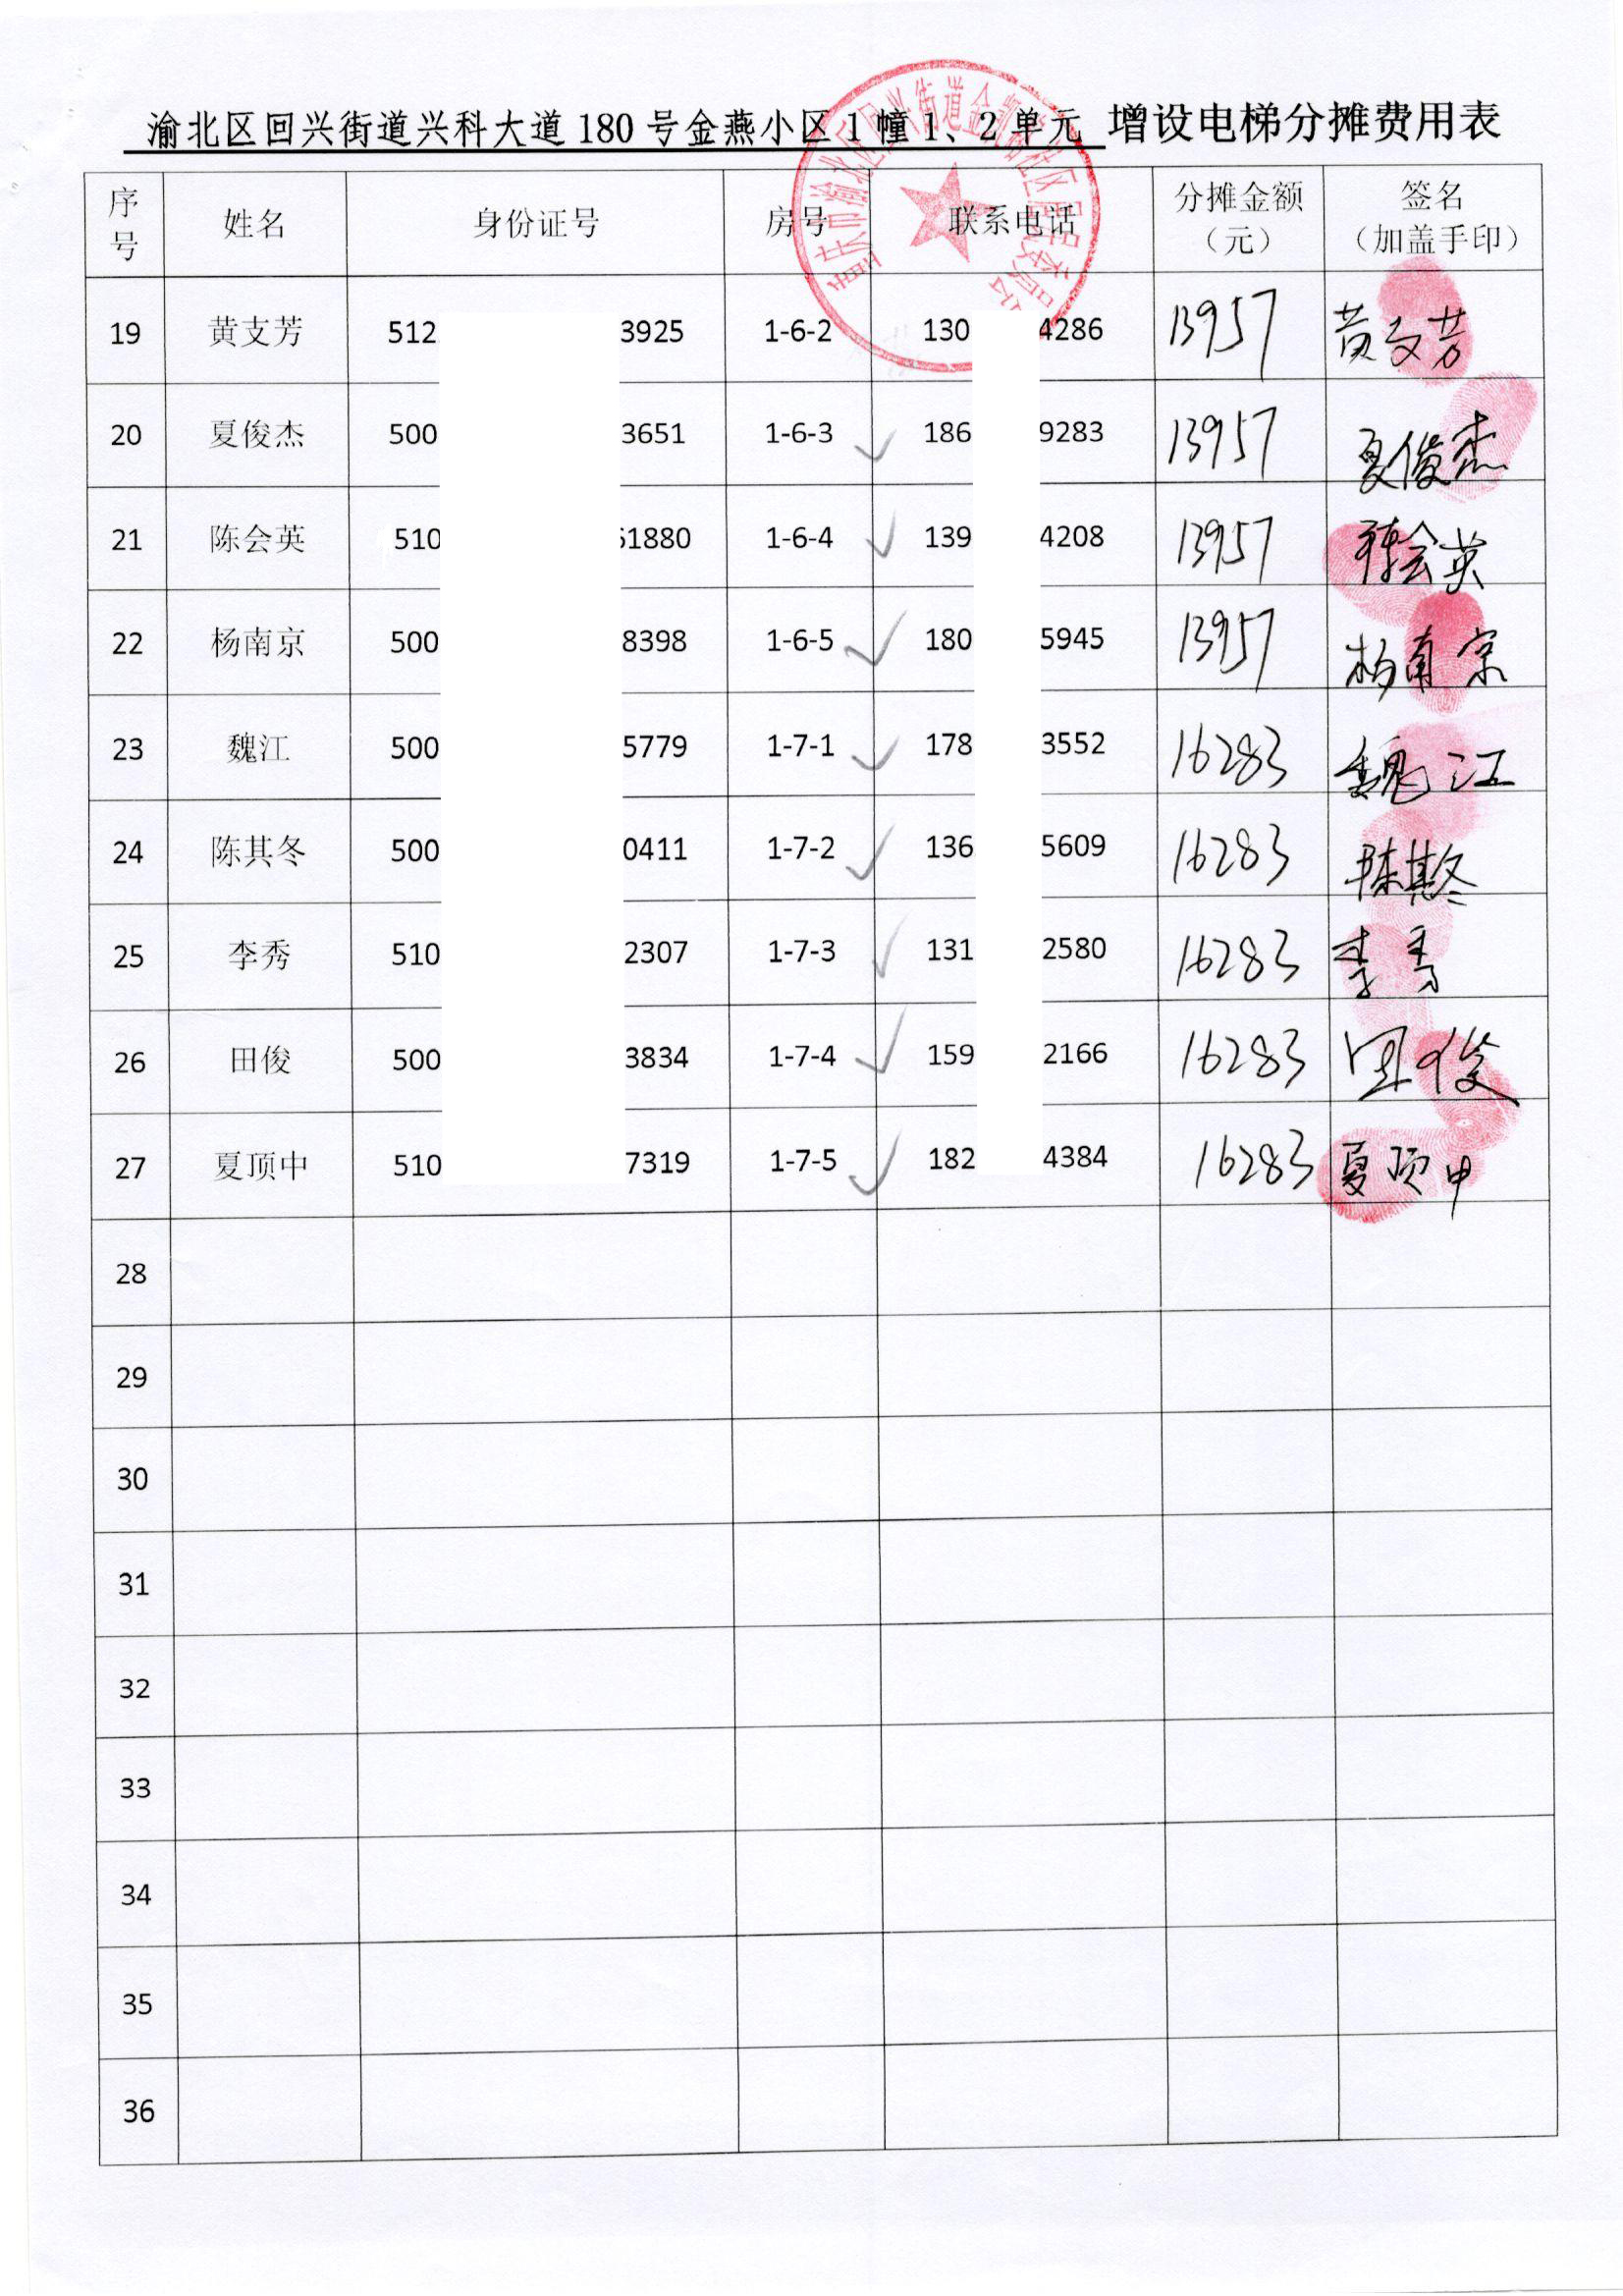 渝北区回兴街道兴科大道180号金燕小区1幢1、2单元 增设电梯分摊费用表
序号 姓名 身份证号 房号 联系电话 分摊金额（元） 签名（加盖手印）
19 黄支芳 512 3925 1-6-2 130 4286 13957 黄支芳
20 夏俊杰 500 3651 1-6-3 186 9283 13957 夏俊杰
21 陈会英 510 61880 1-6-4 139 4208 13957 陈会英
22 杨南京 500 8398 1-6-5 180 5945 13957 杨南京
23 魏江 500 5779 1-7-1 178 3552 16283 魏江
24 陈其冬 500 0411 1-7-2 136 5609 16283 陈其冬
25 李秀 510 2307 1-7-3 131 2580 16283 李秀
26 田俊 500 3834 1-7-4 159 2166 16283 田俊
27 夏顶中 510 7319 1-7-5 182 4384 16283 夏顶中
28
29
30
31
32
33
34
35
36